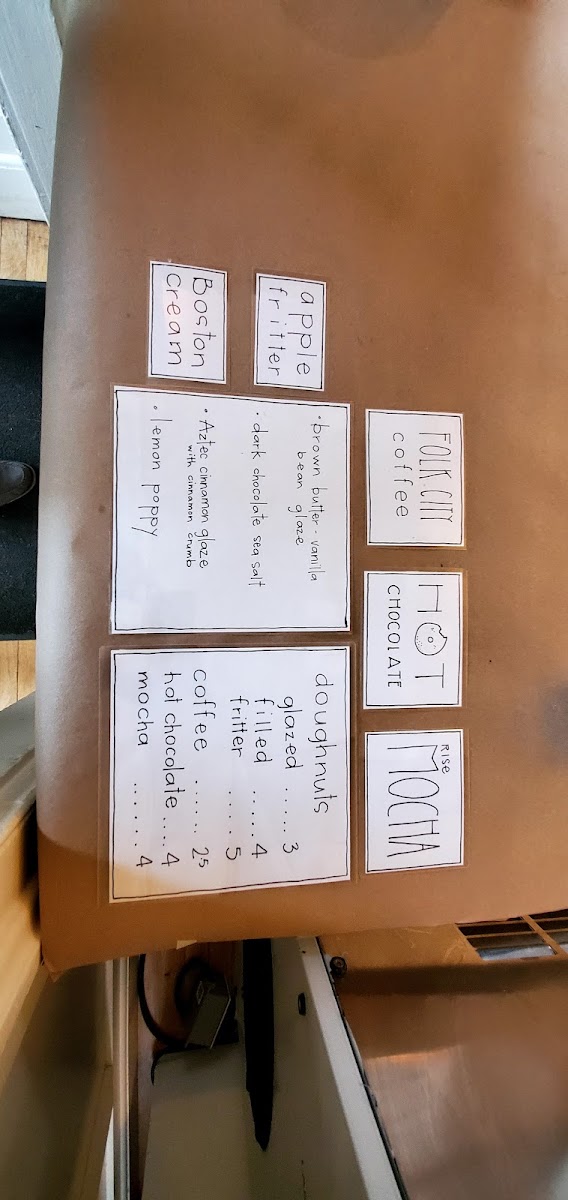 FOLK.CITY
coffee
HOT
CHOCOLATE
RISE
MOCHA
apple
fritter
Boston
cream
• brown butter - vanilla
bean glaze
• dark chocolate sea salt
• Aztec cinnamon glaze
with cinnamon crumb
• lemon poppy
doughnuts
glazed ...... 3
filled ...... 4
fritter ..... 5
coffee ....... 25
hot chocolate .... 4
mocha ....... 4